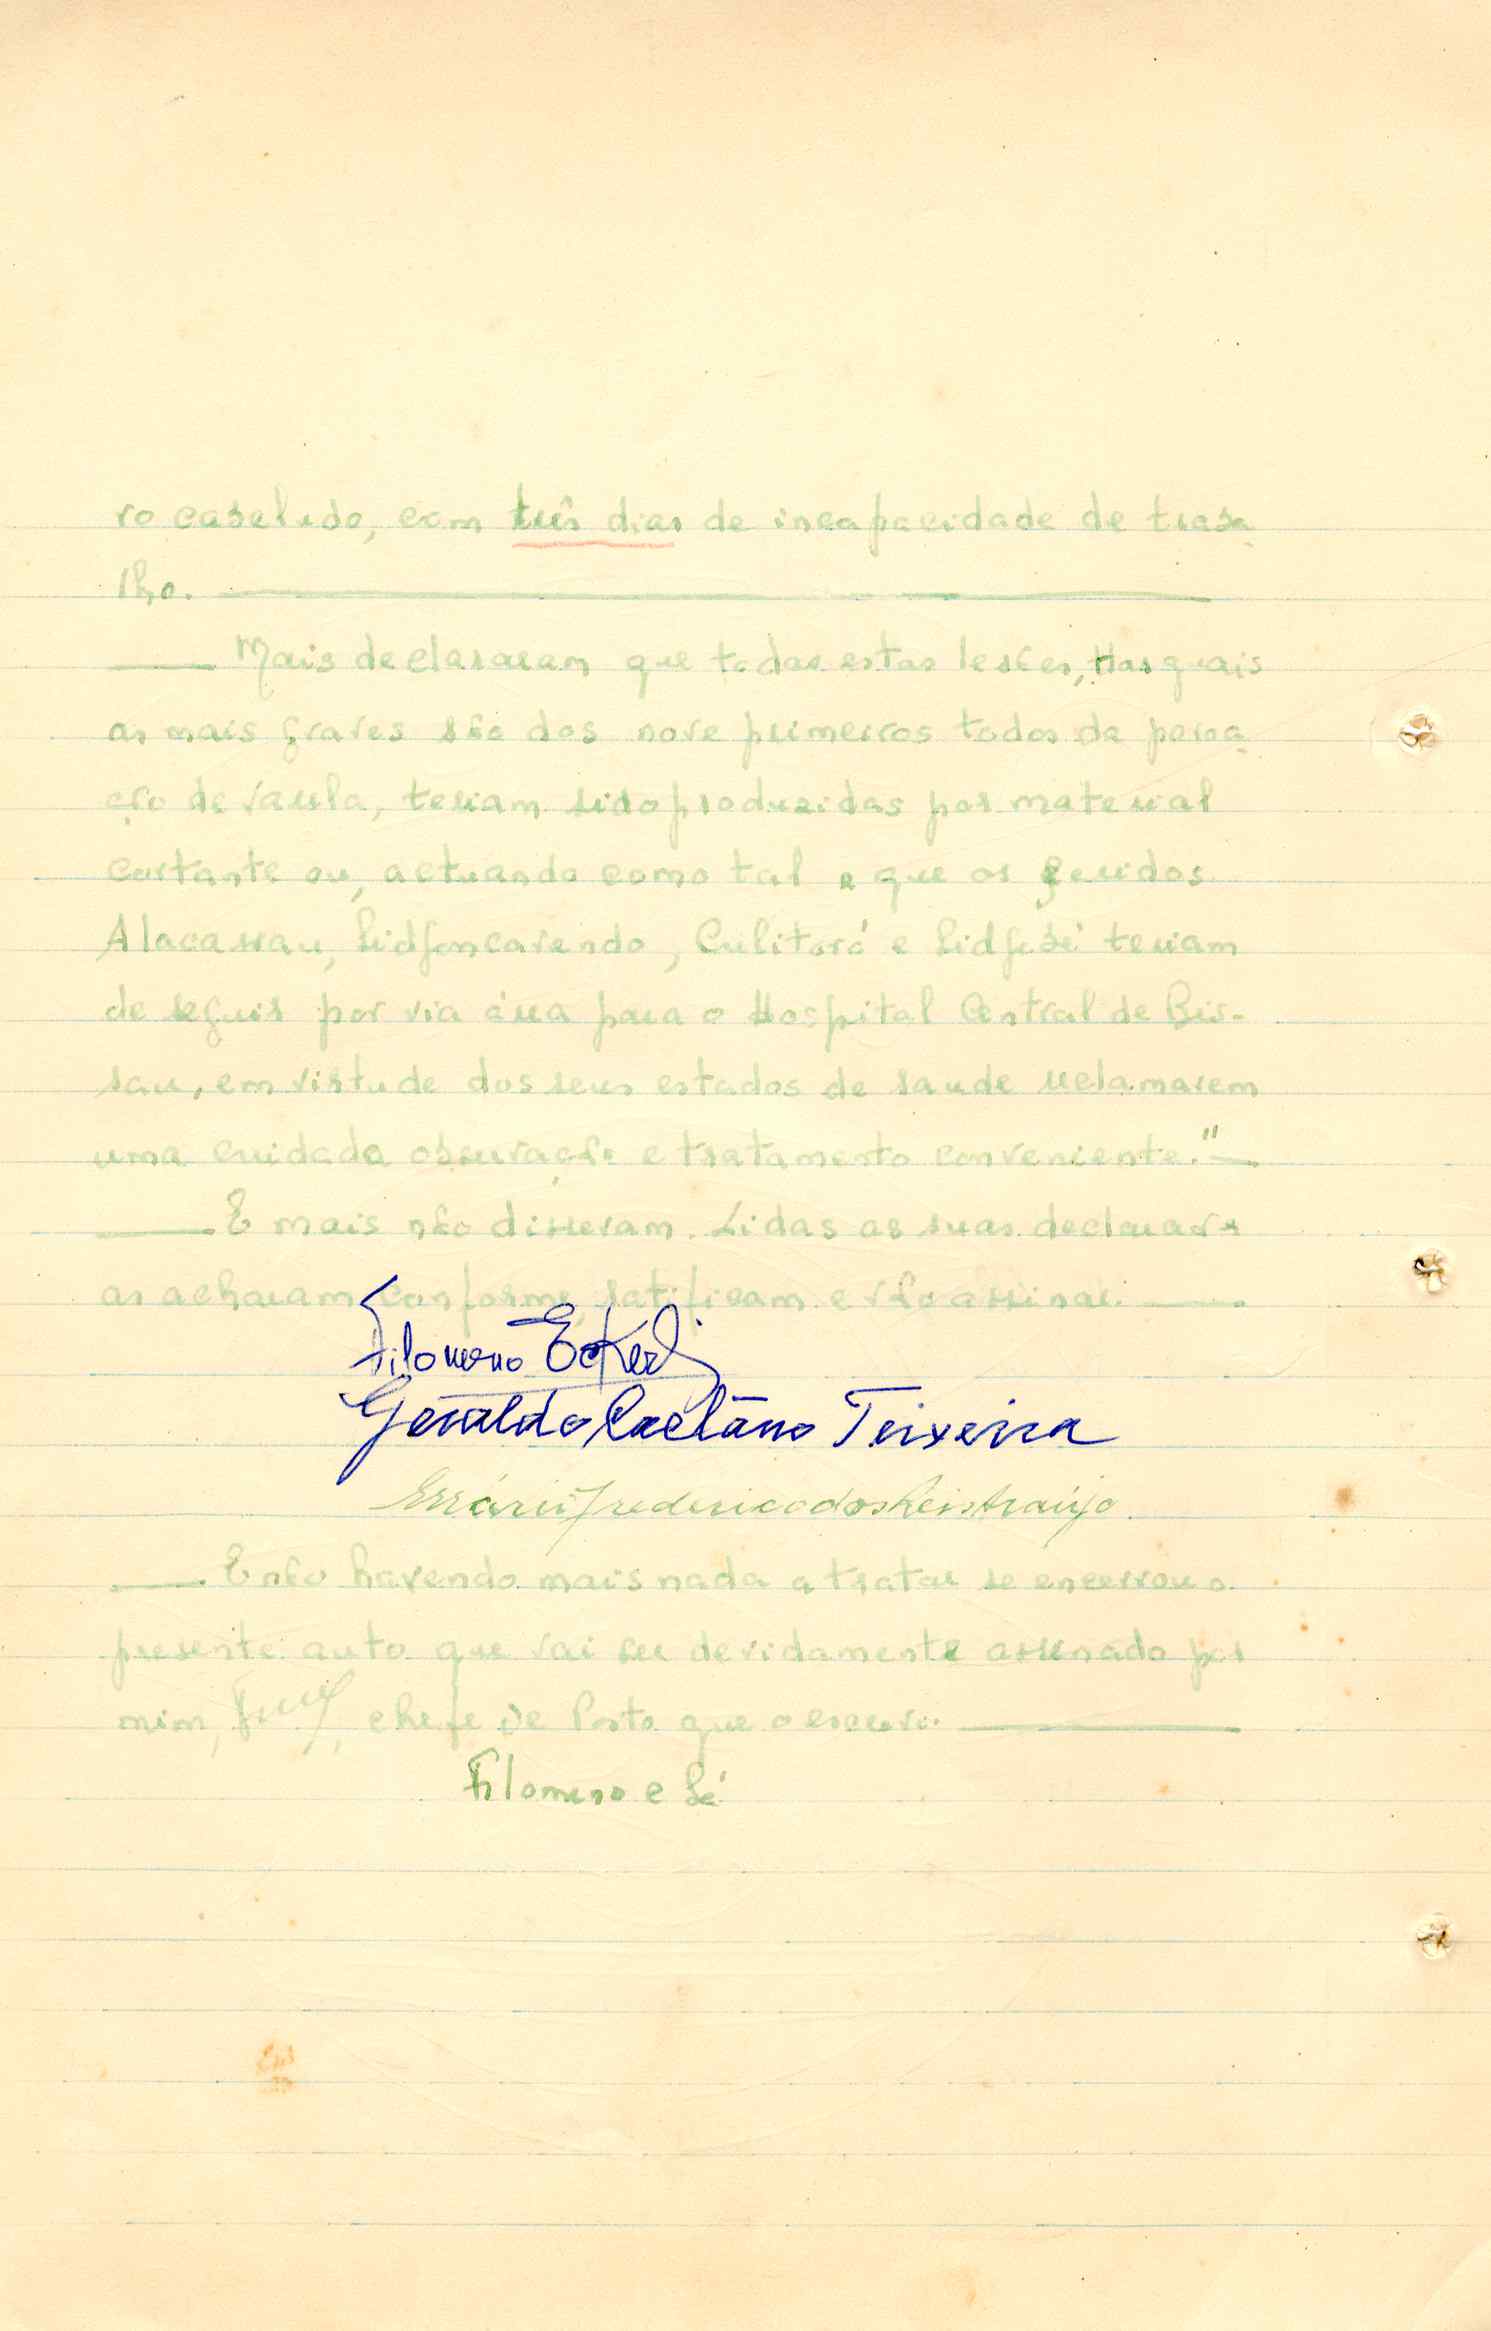 ro cabeludo, com três dias de incapacidade de traba-
lho.
Mais declararam que todas estas lesões, das quais
as mais graves são dos nove primeiros todos da povoa-
ção de Varela, teriam sido produzidas por material
cortante ou, actuando como tal e que os feridos
Alacassau, Sidjoncavendo, Culitoró e Sidjibé teriam
de seguir por via áerea para o Hospital Central de Bis-
sau, em virtude dos seus estados de saude reclamarem
uma cuidada observação e tratamento conveniente."
E mais não disseram. Lidas as suas declarações
as acharam conforme, ratificam e vão assinar.
Filomeno
Geraldo Caetano Teixeira
Frederico dos Reis Araújo
E não havendo mais nada a tratar se encerrou o
presente auto que vai ser devidamente assinado por
mim, chefe de Posto que o escrevi.
Filomeno e Sá